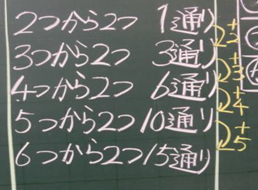 2つから2つ 1通り
3つから2つ 3通り
4つから2つ 6通り
5つから2つ 10通り
6つから2つ 15通り
+2
+3
+4
+5